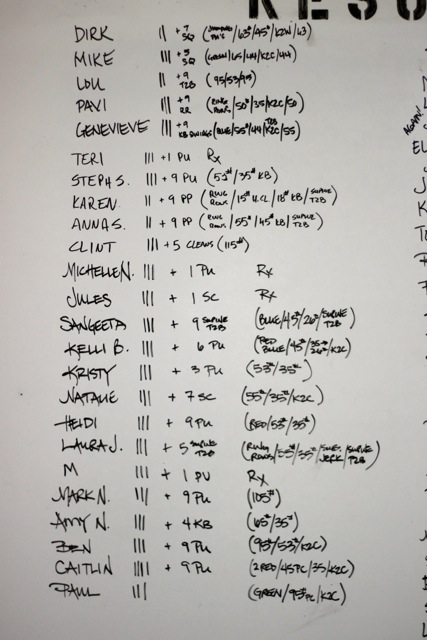 RESU
DIRK || +7 SQ (/63#/45#/K2N/43)
MIKE || +5 SQ (GREEN/65/44/K2C/44)
LOU || +9 T2B (95/53/95)
PAVI || +9 RR (RING ROWS/50#/35/K2C/50)
GENEVIEVE || +9 KB SWINGS (BLUE/55#/44/K2C/55)
TERI ||| +1 PU Rx
STEPH S. ||| +9 PU (53#/35# KB)
KAREN || +9 PP (RING ROWS/15# U.CL/18# KB/SUPINE T2B)
ANNA S. || +9 PP (RING ROWS/55#/45# KB/SUPINE T2B)
CLINT ||| +5 CLEANS (115#)
MICHELLE N. ||| + 1 PU Rx
JULES ||| + 1 SC Rx
SANGEETA ||| + 9 SUPINE T2B (BLUE/45#/26#/SUPINE T2B)
KELLI B. ||| + 6 PU (RED BLUE/45#/35# 26#/K2C)
KRISTY ||| + 3 PU (53#/35#)
NATALIE ||| + 7 SC (55#/35#/K2C)
HEIDI ||| + 9 PU (RED/53#/35#)
LAURA J. ||| + 5 SUPINE T2B (RING ROWS/55#/35#/JERK/SUPINE T2B)
M ||| + 1 PU Rx
MARK N. ||| + 9 PU (105#)
AMY N. ||| + 4 KB (65#/35#)
BEN ||| + 9 PU (95#/53#/K2C)
CAITLIN |||| + 9 PU (2RED/45PC/35/K2C)
PAUL ||| (GREEN/95#PC/K2C)